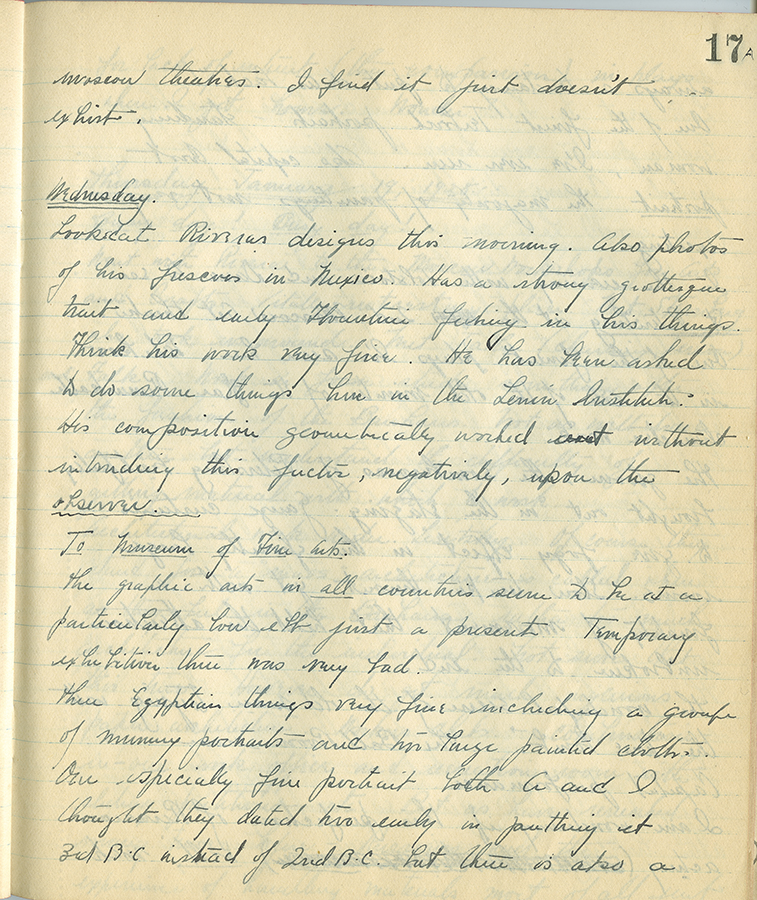 17A
moscow theatres. I find it just doesn't
exhist.
Wednesday.
Looked at Riveras designs this morning. Also photos
of his frescoes in Mexico. Has a strong grottesque
trait and early Florentine feeling in his things.
Think his work very fine. He has been asked
to do some things here in the Lenin Institute.
His composition geometrically worked out without
intruding this factor, negatively, upon the
observer.
To Museum of Fine arts.
The graphic arts in all countries seem to be at a
particularly low ebb just a present. Temporary
exhibition there was very bad.
their Egyptian things very fine including a group
of mummy portraits and two large painted cloths.
One especially fine portrait both A and I
thought they dated too early in putting it
3rd B.C instead of 2nd B.C. but there is also a